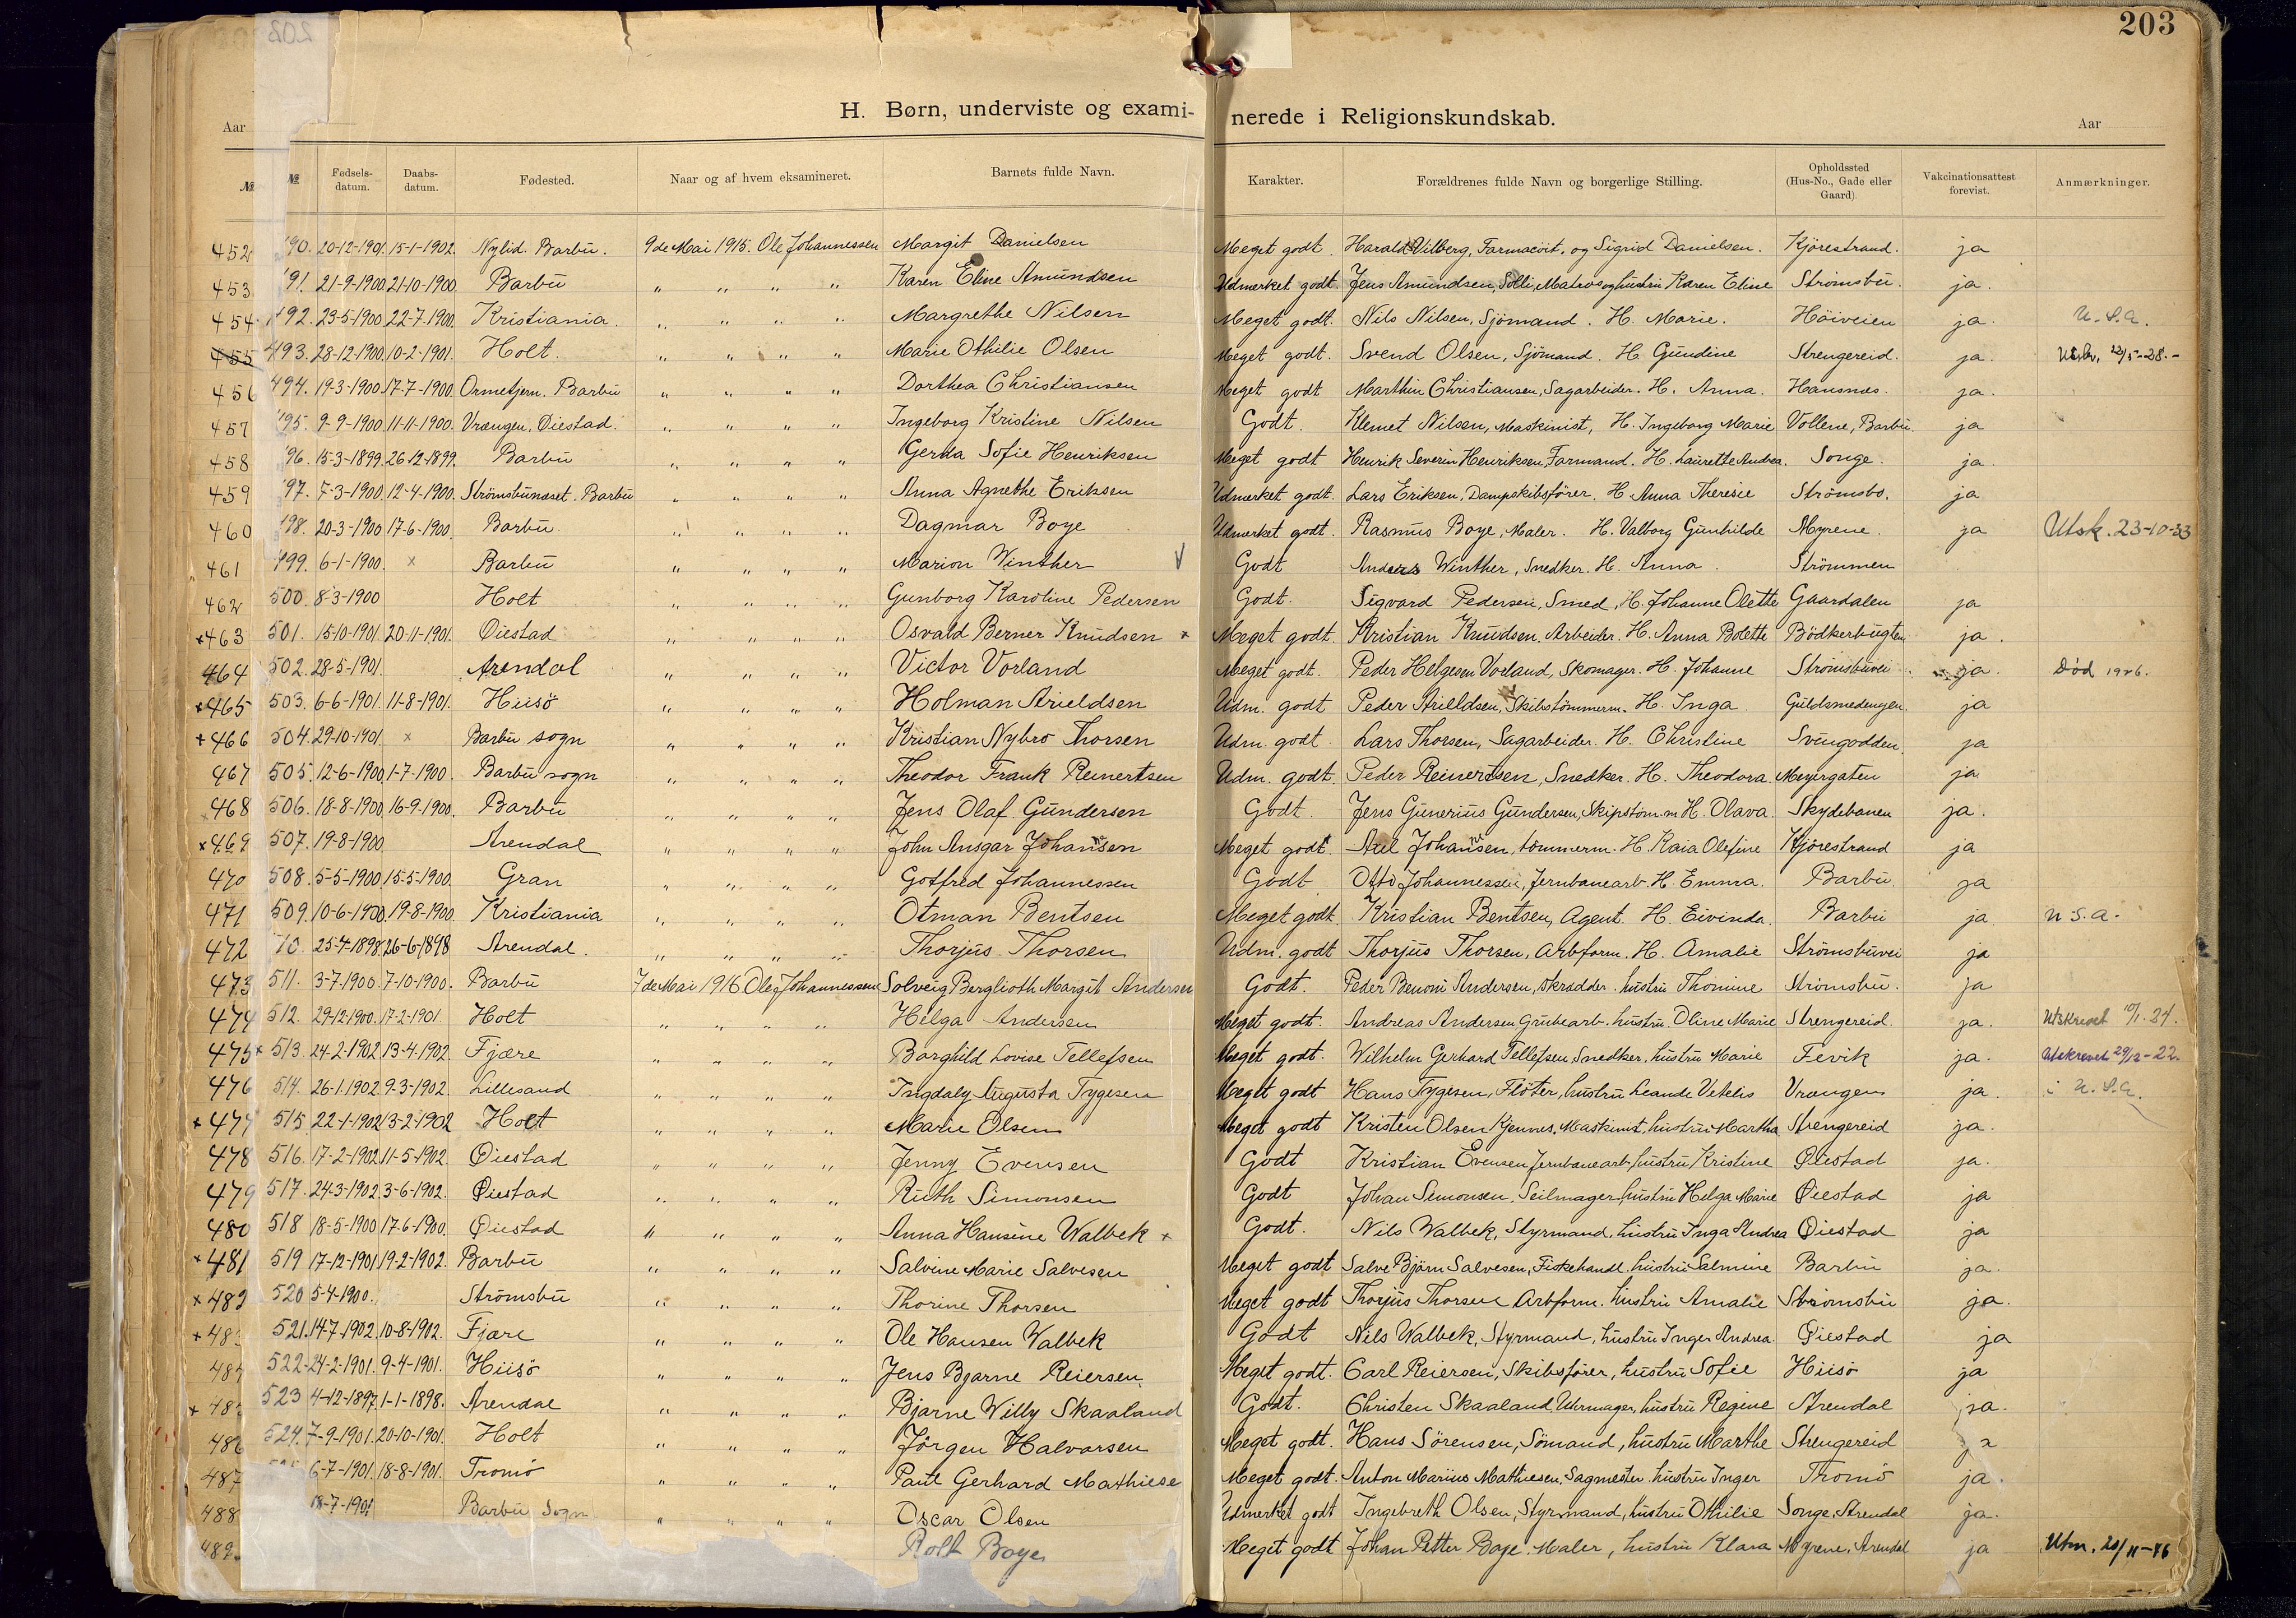 203
H. Børn, underviste og exami- nerede i Religionskundskab.
Aar Aar
№ №. Fødsels-datum. Daabs-datum. Fødested. Naar og af hvem eksamineret. Barnets fulde Navn. Karakter. Forældrenes fulde Navn og borgerlige Stilling. Opholdssted (Hus-No., Gade eller Gaard). Vakcinationsattest forevist. Anmærkninger.
452 490. 20-12-1901. 15-1-1902. Nylid. Barbu. 9de Mai 1915. Ole Johannessen Margit Danielsen Meget godt. Harald Vilberg, Farmacöit. og Sigrid Danielsen. Kjörestrand. ja
453 491. 21-9-1900. 21-10-1900. Barbu " " " " Karen Eline Amundsen Udmerket godt. Jens Amundsen, Solli, Matros og hustru Karen Eline Strömsbu. ja.
454 492. 23-5-1900 22-7-1900. Kristiania. " " " " Margrethe Nilsen Meget godt. Nils Nilsen, Sjömand. H. Marie. Höiveien ja. U.S.A.
455 493. 28-12-1900. 10-2-1901. Holt. " " " " Marie Othilie Olsen Meget godt. Svend Olsen, Sjömand. H. Gundine Strengereid. ja.
456 494. 19-3-1900 17-7-1900. Ormetjern. Barbu " " " " Dorthea Christiansen Meget godt Marthin Christiansen, Sagarbeider. H. Anna. Hansnes. ja.
457 495. 9-9-1900. 11-11-1900. Vrængen, Öiestad. " " " " Ingeborg Kristine Nilsen Godt. Klemet Nilsen, Maskinist, H. Ingeborg Marie Vollene, Barbu. ja
458 496. 15-3-1899. 26-12-1899. Barbu " " " " Gerda Sofie Henriksen Meget godt Henrik Severin Henriksen, Formand. H. Laurette Andrea. Songe. ja.
459 497. 7-3-1900. 12-4-1900. Strömsbuneset. Barbu " " " " Anna Agnethe Eriksen Udmerket godt. Lars Eriksen, Dampskibsförer. H. Anna Theresie Strömsbo. ja
460 498. 20-3-1900 17-6-1900. Barbu. " " " " Dagmar Boye Udmerket godt. Rasmus Boye, Maler. H. Valborg Gunhilde Myrene. ja Utsk. 23-10-33
461 499. 6-1-1900. x Barbu " " " " Marion Winther V Godt Anders Winther, Snedker. H. Anna. Strömmen
462 500. 8-3-1900 Holt " " " " Gunborg Karoline Pedersen Godt. Sigvard Pedersen, Smed, H. Johanne Olette Gaardalen ja
x463 501. 15-10-1901. 20-11-1901. Öiestad " " " " Osvald Berner Knudsen x Meget godt. Kristian Knudsen. Arbeider. H. Anna Bolette Bödkerbugten ja.
464 502. 28-5-1901. Arendal " " " " Victor Vorland Meget godt. Peder Helgesen Vorland, Skomager. H. Johanne Strömsbuvei ja. Död 1926.
x465 503. 6-6-1901. 11-8-1901. Hisö " " " " Holman Arieldsen Udm. godt Peder Arieldsen, Skibstömmerm. H. Inga Guldsmedengen. ja
+466 504. 29-10-1901. x Barbu sogn " " " " Kristian Nybro Thorsen Udm. godt. Lars Thorsen, Sagarbeider. H. Christine Svingodden. ja
467 505. 12-6-1900. 1-7-1900. Barbu sogn " " " " Theodor Frank Reinertsen Udm. godt. Peder Reinertsen, Snedker. H. Theodora. Meyergaten ja
468 506. 18-8-1900. 16-9-1900. Barbu " " " " Jens Olaf Gundersen Godt. Jens Gunerius Gundersen, Skipstöm.m H. Olava. Skydebanen ja.
x469 507. 19-8-1900. Arendal " " " " John Ansgar Johansen Meget godt. Axel Johansen, tömmerm. H. Kaia Olefine Kjörestrand ja
470 508. 5-5-1900. 15-5-1900. Gran " " " " Gotfred Johannessen Godt Otto Johannessen, Jernbanearb. H. Emma. Barbu. ja
471 509. 10-6-1900. 19-8-1900. Kristiania " " " " Otman Bentsen Meget godt. Kristian Bentsen, Agent. H. Eivinda. Barbu ja U.S.A.
472 10. 25-4-1898. 26-6-1898 Arendal. " " " " Thorjus Thorsen Udm. godt Thorjus Thorsen, Arbform. H. Amalie Strömsbuvei ja
473 511. 3-7-1900. 7-10-1900. Barbu 7de Mai 1916 Ole Johannessen Solveig Berglioth Margit Andersen Godt. Peder Benoni Andersen, skrædder. hustru Thomine Strömsbu. ja
474 512. 29-12-1900. 17-2-1901. Holt " " " " Helga Andersen Meget godt. Andreas Andersen Grubearb. hustru. Oline Marie Strengereid. ja. Utskrevet 10/1-24.
475x 513. 24-2-1902. 13-4-1902. Fjære " " " " Borghild Lovise Tellefsen Meget godt. Wilhelm Gerhard Tellefsen, Snedker, hustru Marie Fevik ja. Utskrevet 29/12-22
476 514. 26-1-1902. 9-3-1902. Lillesand " " " " Ingdaly Augusta Tygesen Meget godt Hans Tygesen, Flöter, hustru Leande Vrængen ja. i U.S.A.
x477 515 22-1-1902 13-2-1902 Holt " " " " Marie Olsen Meget godt Kristen Olsen Kjennes, Maskinist, hustru Martha Strengereid ja.
478 516. 17-2-1902. 11-5-1902. Öiestad " " " " Jenny Evensen Godt Kristian Evensen Jernbanearb. hustru Kristine Öiestad ja.
479 517. 24-3-1902. 3-6-1902. Öiestad " " " " Ruth Simonsen Godt Johan Simonsen, Seilmager, hustru Helga Marie Öiestad ja
480 518 18-5-1900 17-6-1900. Öiestad " " " " Anna Hansine Walbek x Godt. Nils Walbek, Styrmand, hustru Inga Andrea Öiestad ja
x481 519 17-12-1901. 19-2-1902. Barbu " " " " Salvine Marie Salvesen Meget godt Salve Björn Salvesen, Fiskehandl. hustru Salmine Barbu ja.
x482 520 5-4-1900. Strömsbu " " " " Thorine Thorsen Meget godt Thorjus Thorsen Arbform. hustru Amalie Strömsbu ja.
x48 521. 14-7-1902. 10-8-1902. Fjære " " " " Ole Hansen Walbek Godt Nils Walbek, Styrmand, hustru Inger Andrea Öiestad ja
484 522. 24-2-1901. 9-4-1901. Hisö " " " " Jens Bjarne Reiersen. Meget godt. Carl Reiersen, Skibsförer, hustru Sofie Hisö ja
x 48 523 4-12-1897. 1-1-1898. Arendal " " " " Bjarne Willy Skaaland Godt. Christen Skaaland, Uhrmager, hustru Regine Arendal ja.
486 524. 7-9-1901. 20-10-1901. Holt " " " " Jörgen Halvorsen Meget godt. Hans Sörensen, Sömand, hustru Marthe Strengereid ja
487 6-7-1901. 18-8-1901. Tromö " " " " Paul Gerhard Mathiese Meget godt. Anton Marius Mathiesen, Sagmester. hustru Inger Tromö ja.
488 18-7-1901 Barbu Sogn " " " " Oscar Olsen Udmerket godt Ingebreth Olsen, Styrmand, hustru Othilie Songe, Arendal ja.
489 Rolf Boye Meget godt Johan Petter Boye. Maler, hustru Klara Myrene, Arendal ja Utm. 20/11-46